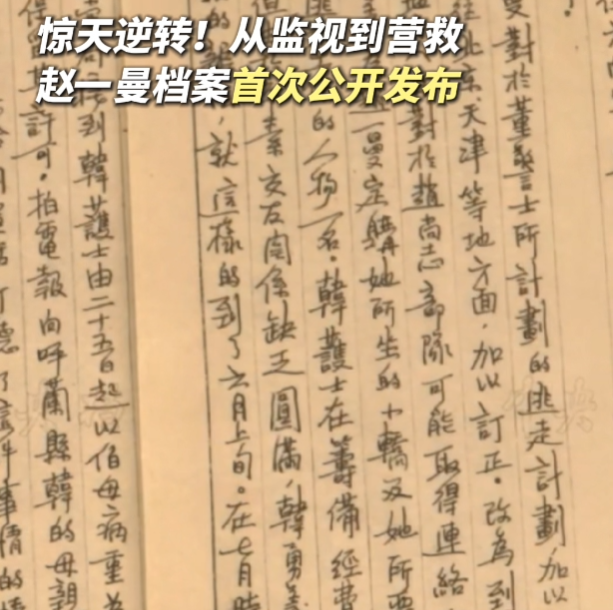 惊天逆转！从监视到营救
赵一曼档案首次公开发布
曼對於董警士所計劃的逃走計劃，加以
北京、天津等地方面，加以訂正。改為到
對於趙尚志部隊可能取得連絡
一曼定購她所坐的小轎及她所要
的人物一名。韓護士在籌備經費
素交友関係缺乏圓滿，韓勇義
，就這樣的到了六月上旬。在七月
到韓護士由二十五日起以伯母病重為
許可。拍電報向呼蘭縣韓的母親
了這件事情的